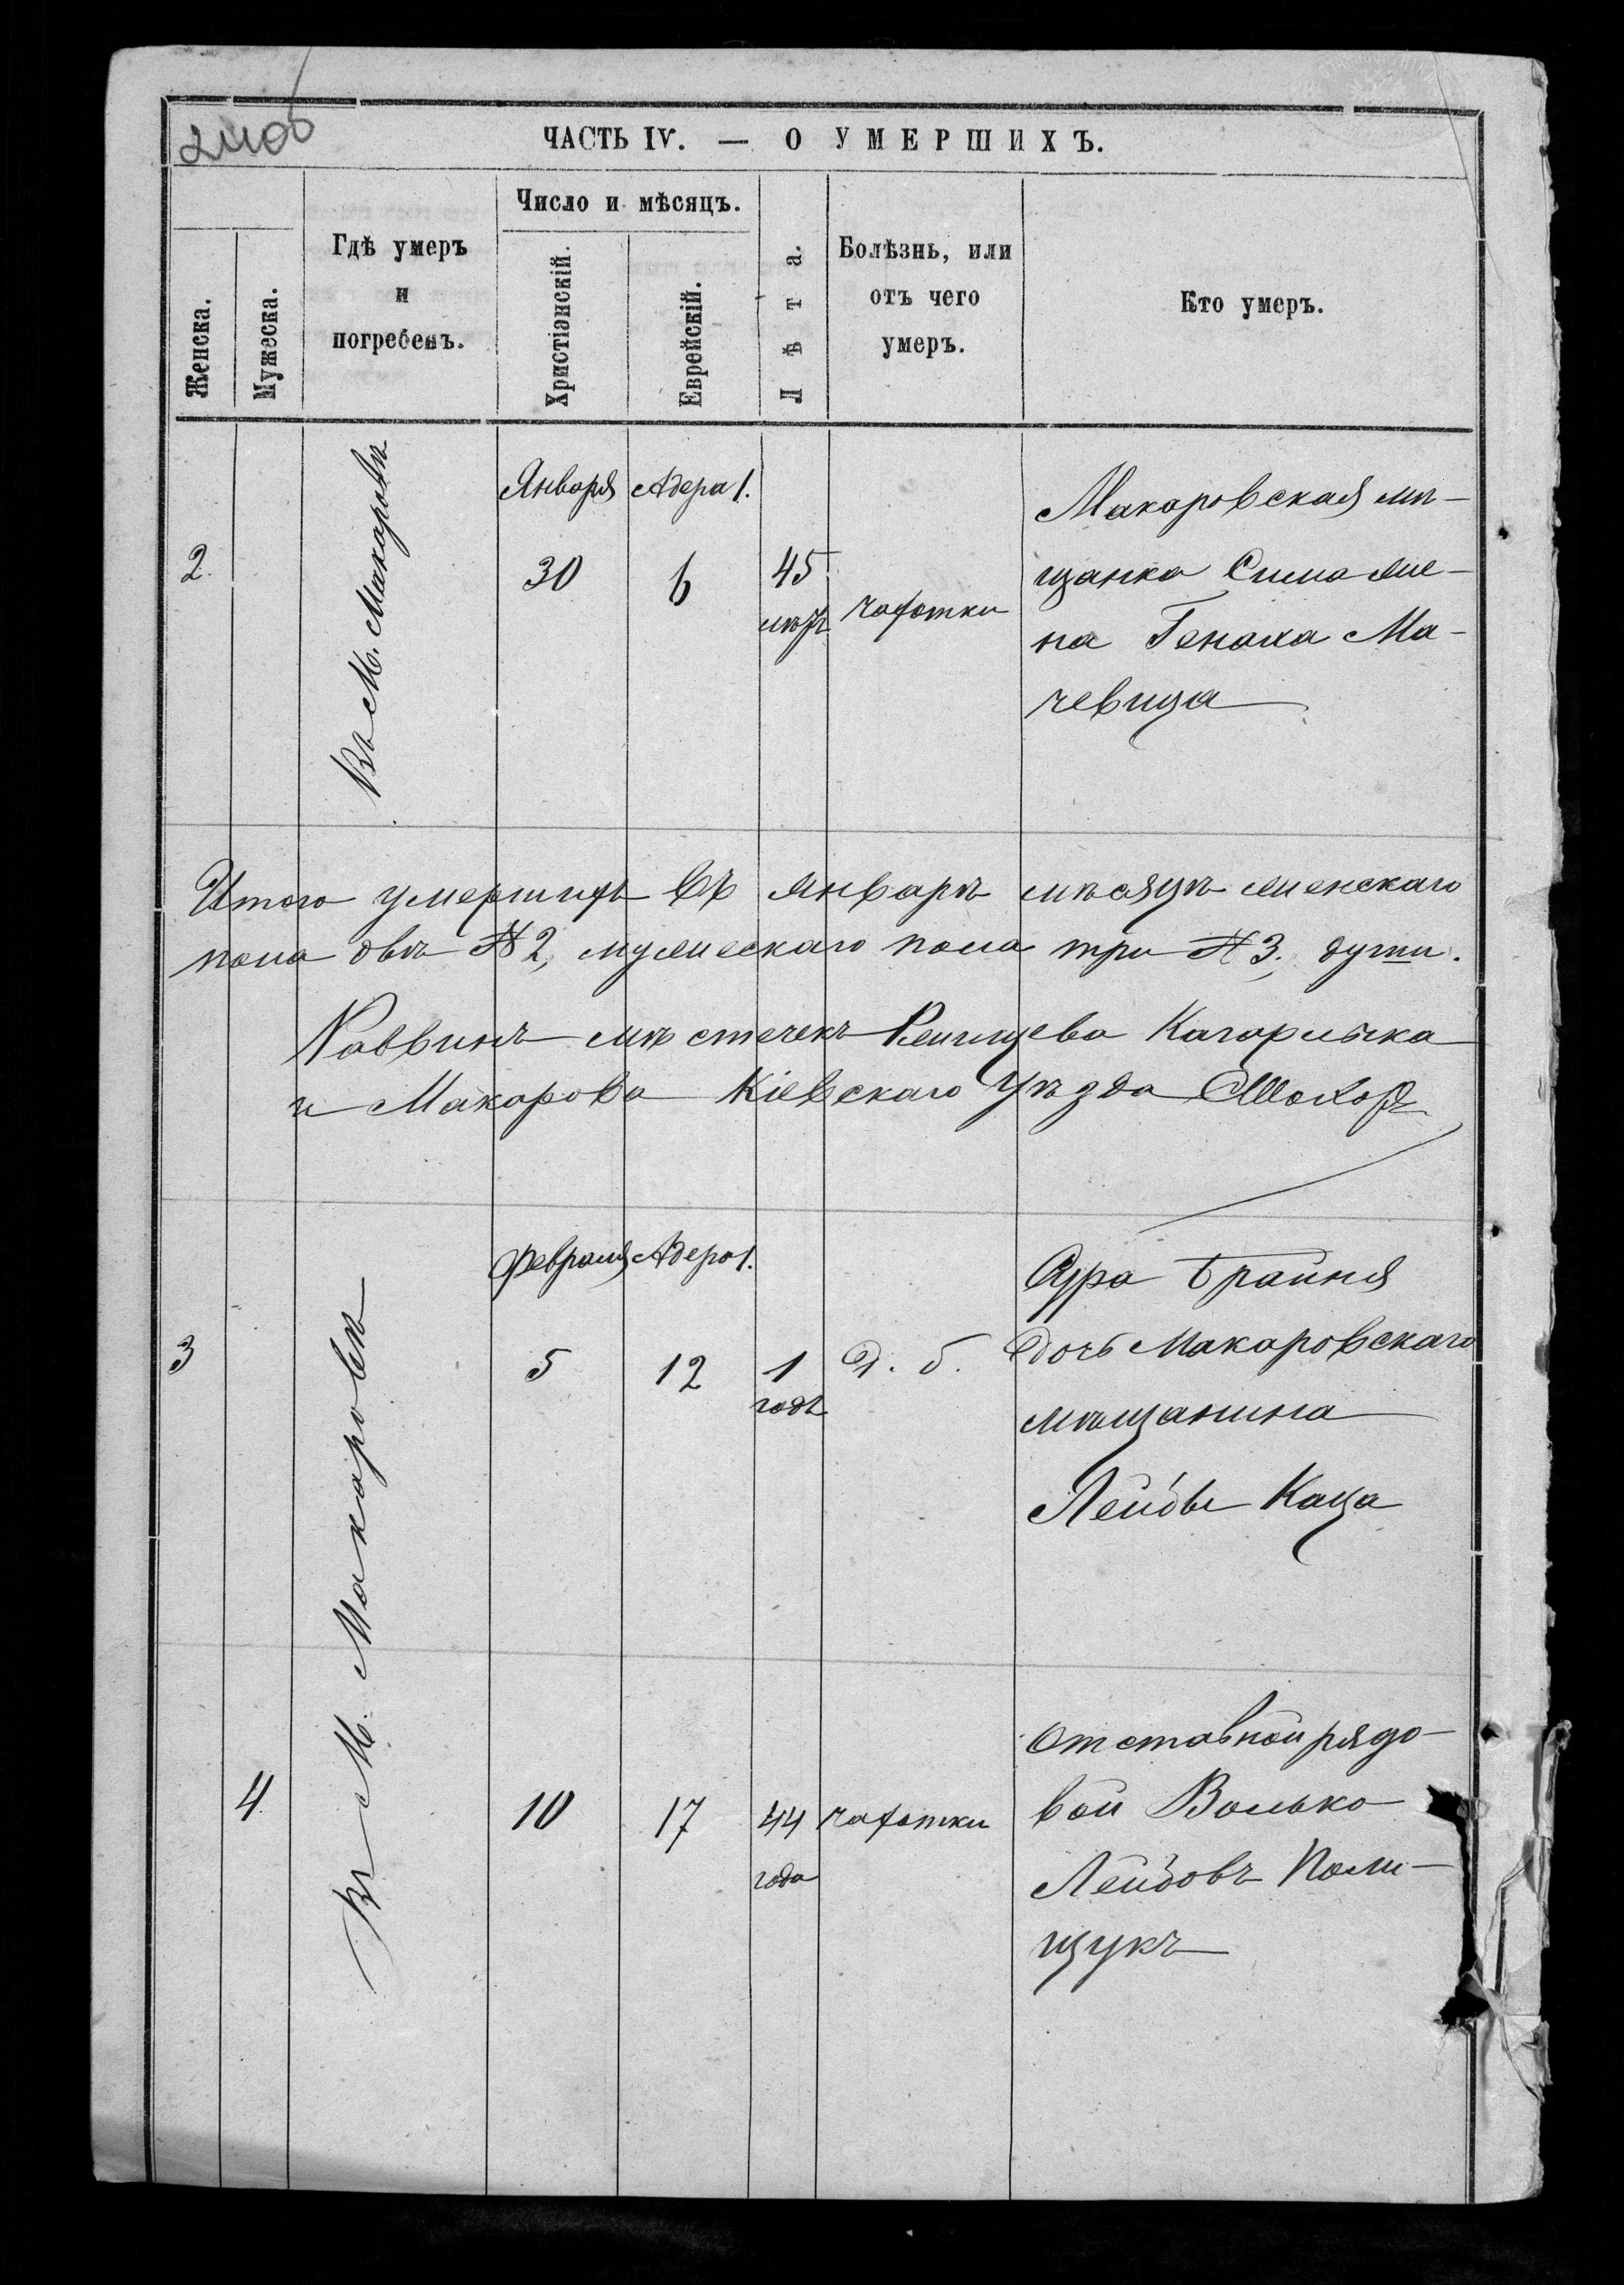 24об
ЧАСТЬ IV. — О УМЕРШИХЪ.
Женска.
Мужеска.
Гдѣ умеръ
и
погребенъ.
Число и мѣсяцъ.
Христіанскій.
Еврейскій.
Лѣта.
Болѣзнь, или
отъ чего
умеръ.
Кто умеръ.
2.
Въ М. Макаровѣ
Января
30
Адера 1.
6
45
лѣтъ
чахотки
Макаровская мѣ-
щанка Сима же-
на Геноха Ма-
чевица
Итого умершихъ въ январѣ мѣсяцѣ женскаго
пола двѣ № 2, мужескаго пола три № 3. души.
Раввинъ мѣстечекъ Ржищева Кагарлыка
и Макарова Кіевскаго Уѣзда
3
Въ М. Макаровѣ
Февраля
5
Адера 1.
12
1
годъ
д. б.
Сура Брайня
дочь Макаровскаго
мѣщанина
Лейбы Каца
4.
10
17
44
года
чахотки
Отставной рядо-
вой Волько
Лейбовъ Поли-
щукъ